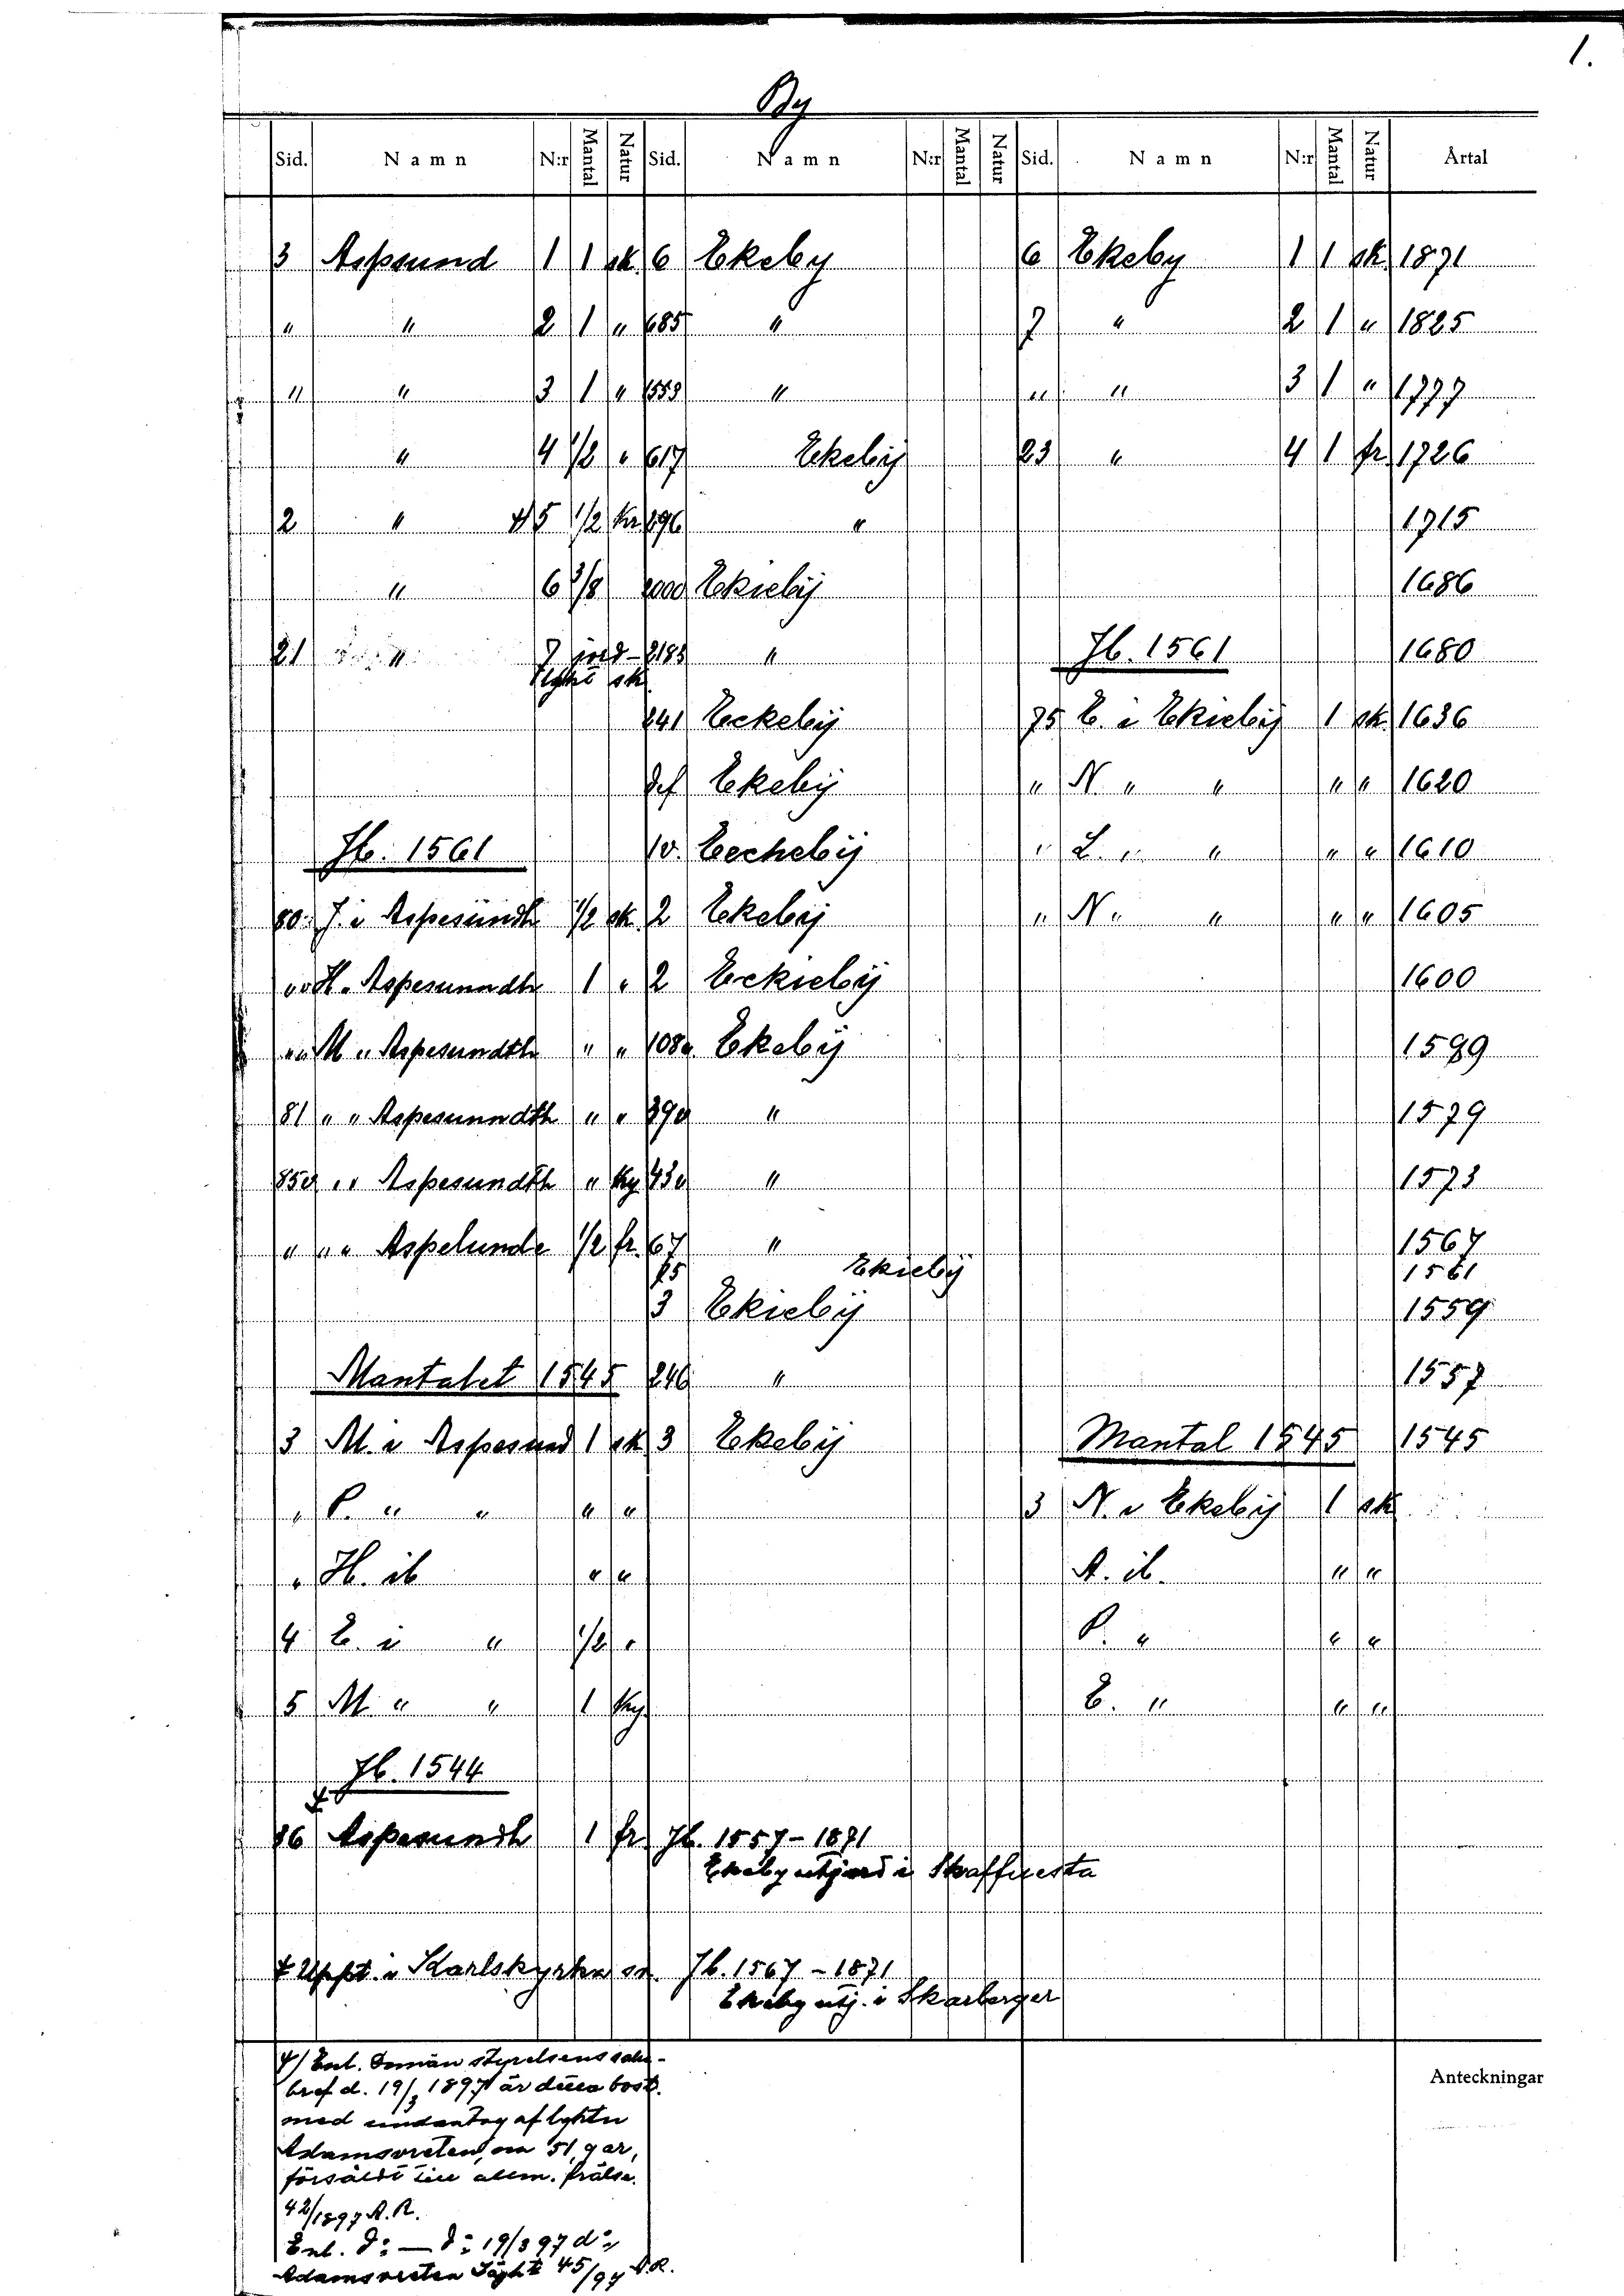 1.
By
Sid. Namn N:r Mantal Natur Sid. Namn N:r Mantal Natur Sid. Namn N:r Mantal Natur Årtal
3 Aspsund 1 1 sk. 6 Ekeby 6 Ekeby 1 1 sk. 1871
" " 2 1 " 685 " 7 " 2 1 " 1825
" " 3 1 " 1553 " " " 3 1 " 1777
" 4 1/2 " 617 Ekebÿ 23 " 4 1 fr. 1726
2 " 4) 5 1/2 Kr. 296 " 1715
" 6 3/8 2000 Ekiebÿ 1686
21 " 7 jord- 2183 " Jb. 1561 1680
lght sk.
241 Eckebÿ 75 E. i Ekiebÿ 1 sk. 1636
Def Ekebÿ " N. " " " " 1620
Jb. 1561 1v. Eechebÿ " L. " " " " 1610
80 J. i Aspesundh 1/2 sk. 2 Ekebÿ " N " " " " 1605
" " H. " Aspesunndh 1 " 2 Eckiebÿ 1600
" " M " Aspesundth " " 108v Ekebÿ 1589
81 " " Aspesunndth " " 39v " 1579
85v " " Aspesundth " Ky. 43v " 1573
" " " Aspelunde 1/2 fr. 67 " 1567
75 Ekiebÿ 1561
3 Ekiebÿ 1559
Mantalet 1545 246 " 1557
3 M. i Aspesund 1 sk 3 Ekebÿ Mantal 1545 1545
" P. " " " " 3 N. i Ekebÿ 1 sk
" H. ib " " A. ib. " "
4 E. i " 1/2 " P. " " "
5 M " " 1 Ky. E. " " "
Jb. 1544
‡
86 Aspesundh 1 fr. Jb. 1557-1871
Ekeby utjord i Skaffuesta
‡ Uppt. i Karlskyrka sn Jb. 1567-1871
Ekeby utj. i Skarberger
4) Enl. Domän styrelsens
bref d. 19/3 1897 är dessa bost.
med undantag af lghtn
Adamsvreten, om 51,9 ar,
försåldt till allm. frälse.
42/1897 A.R.
Enl. d:o — d:o 19/3 97 d:o
Adamsvreten Läght 45/97 A.R.
Anteckningar